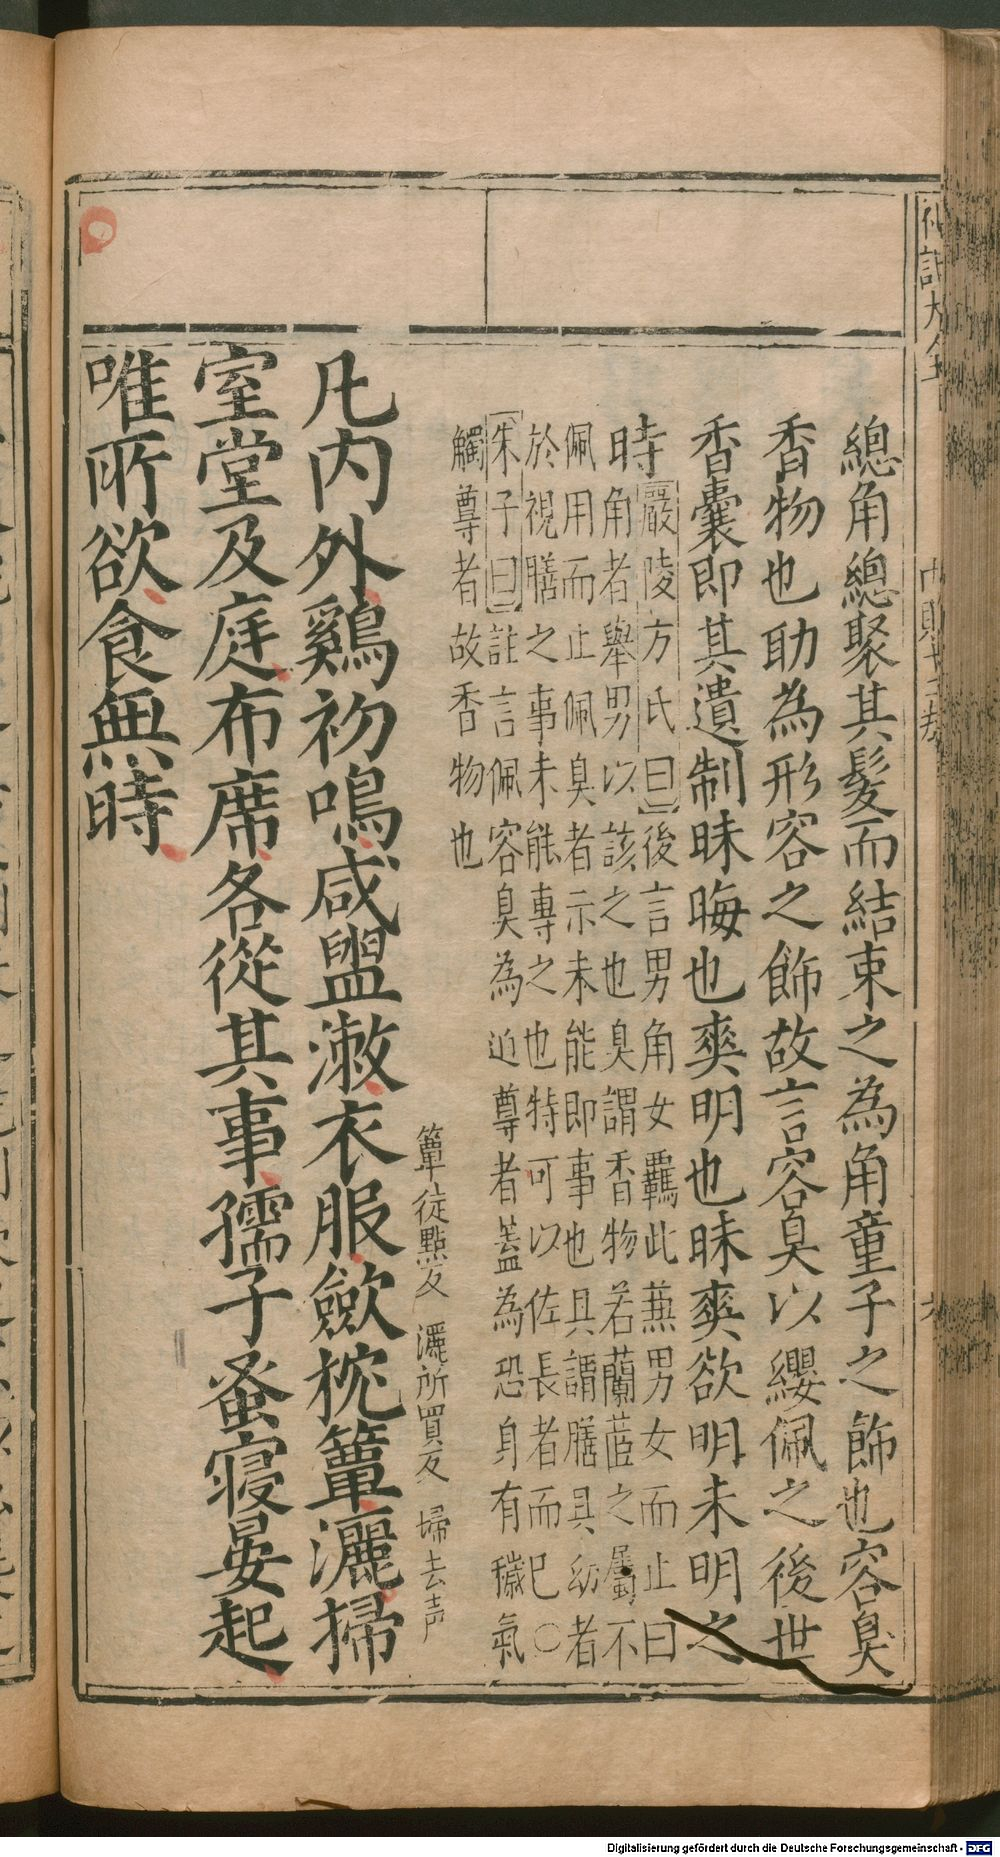 總角總聚其髮而結束之為角童子之飾也容臭
香物也助為形容之飾故言容臭以纓佩之後世
香囊即其遺制昧晦也爽明也昧爽欲明未明之
時
嚴陵方氏曰後言男角女羈此蕪男女而止曰
角者舉男以該之也臭謂香物若蘭茝之屬不
佩用而止佩臭者示未能即事也具謂膳具幼者
於視膳之事未能專之也特可以佐長者而已○
朱子曰註言佩容臭為迫尊者蓋為恐身有穢氣
觸尊者故香物也
簟徒點反 灑所買反 掃去声
凡內外鷄初鳴咸盥漱衣服歛枕簟灑掃
室堂及庭布席各從其事孺子蚤寝晏起
唯所欲食無時
Digitalisierung gefördert durch die Deutsche Forschungsgemeinschaft - DFG